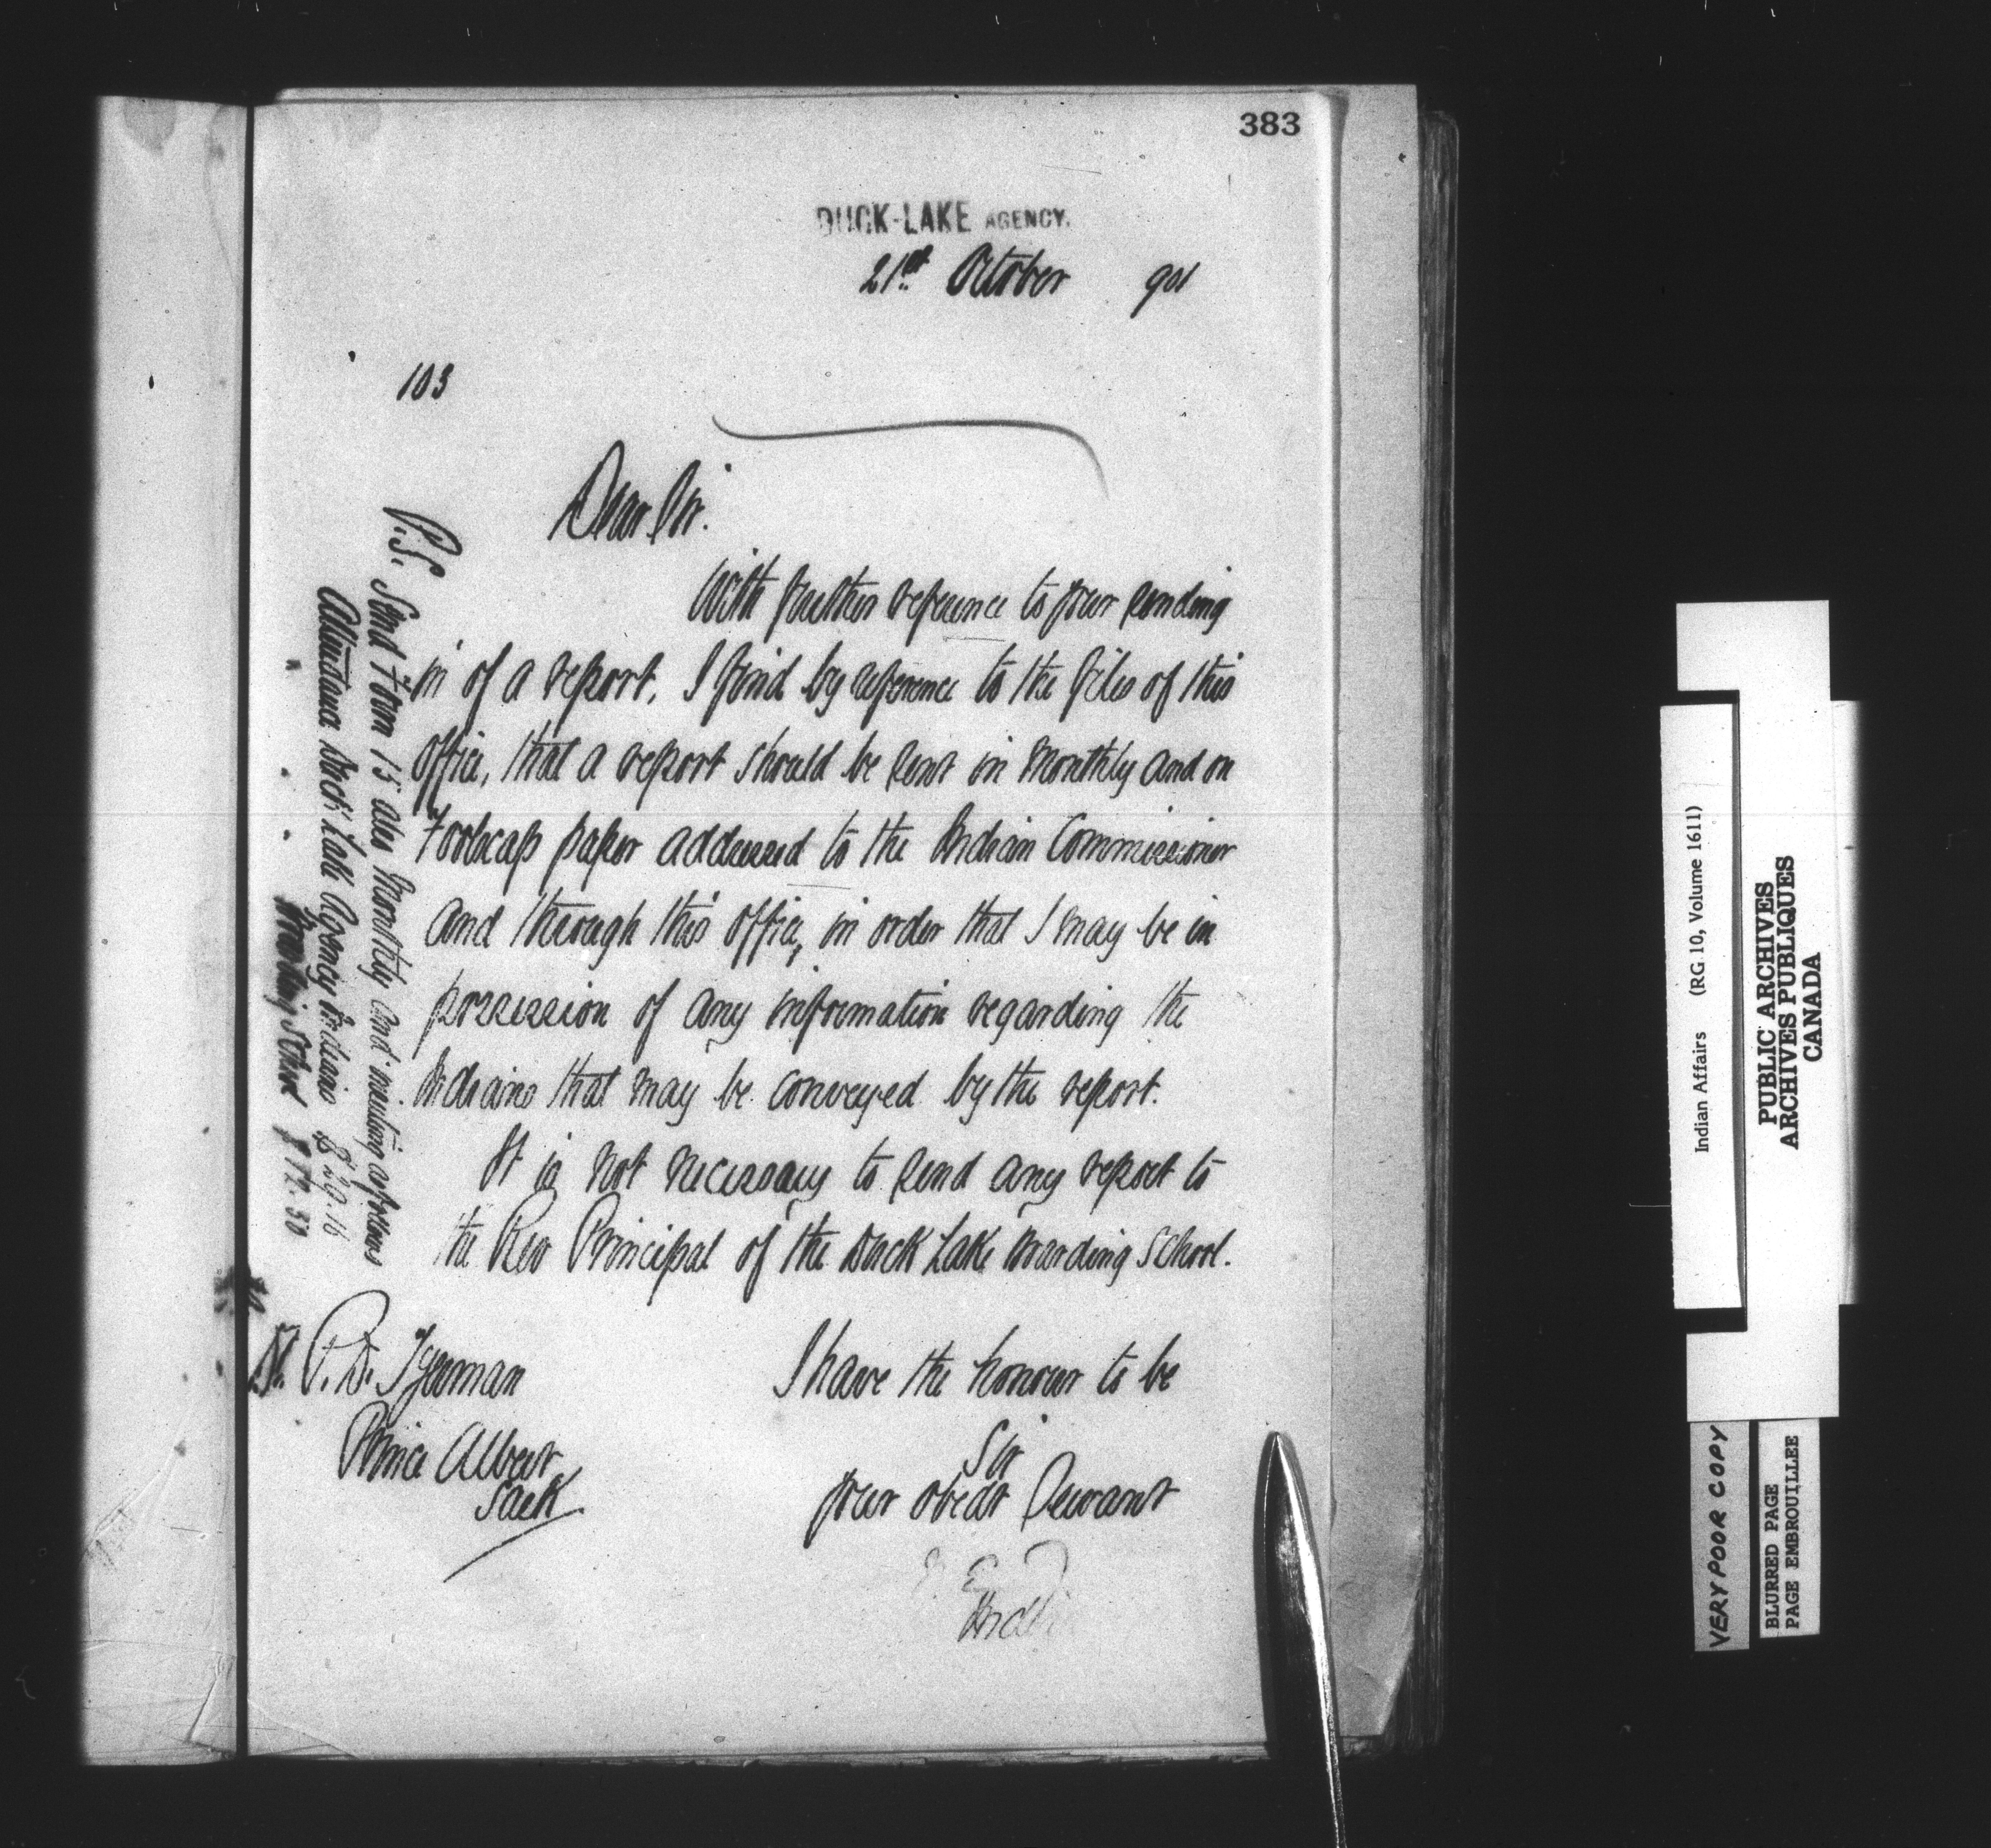 383
DUCK-LAKE AGENCY.
21st October 901
103
Dear Sir.
With further reference to your sending
in of a report, I find by reference to the files of this
Office, that a report should be sent in Monthly and on
Foolscap paper addressed to the Indian Commissioner
and through this Office, in order that I may be in
possession of any information regarding the
Indians that may be conveyed by the report.
It is not necessary to send any report to
the Rev Principal of the Duck Lake Boarding School.
I have the honour to be
Sir
Your obedt Servant
Ind
P. D. Tyerman
Prince Albert
Sask
P.S. Send Form 15 also Monthly and as follows
Attendance Duck Lake Agency Indians
Boarding School 12.50
Indian Affairs (RG 10, Volume 1611)
PUBLIC ARCHIVES
ARCHIVES PUBLIQUES
CANADA
VERY POOR COPY
BLURRED PAGE
PAGE EMBROUILLEE